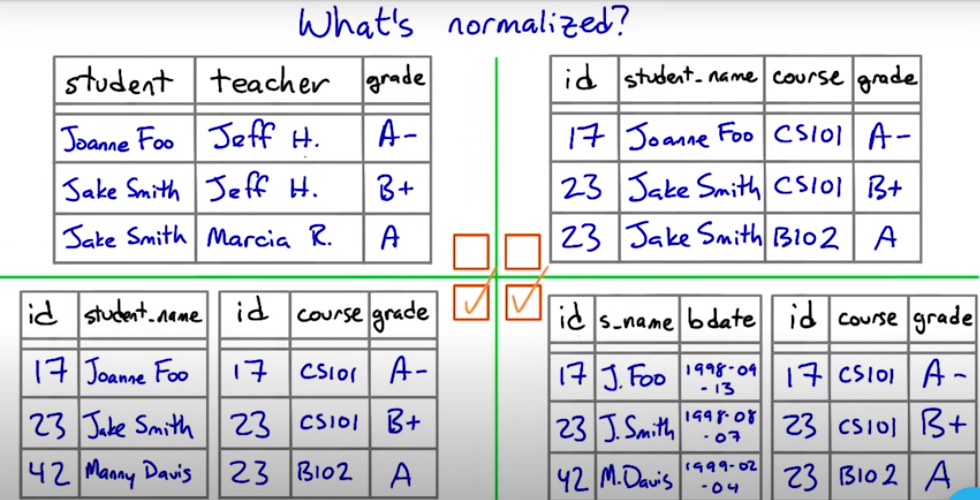 What's normalized?
student teacher grade
Joanne Foo Jeff H. A-
Jake Smith Jeff H. B+
Jake Smith Marcia R. A
id student_name course grade
17 Joanne Foo CS101 A-
23 Jake Smith CS101 B+
23 Jake Smith B102 A
id student_name
17 Joanne Foo
23 Jake Smith
42 Manny Davis
id course grade
17 CS101 A-
23 CS101 B+
23 B102 A
id s_name bdate
17 J. Foo 1998-04
-13
23 J. Smith 1998-08
-07
42 M. Davis 1999-02
-04
id course grade
17 CS101 A-
23 CS101 B+
23 B102 A